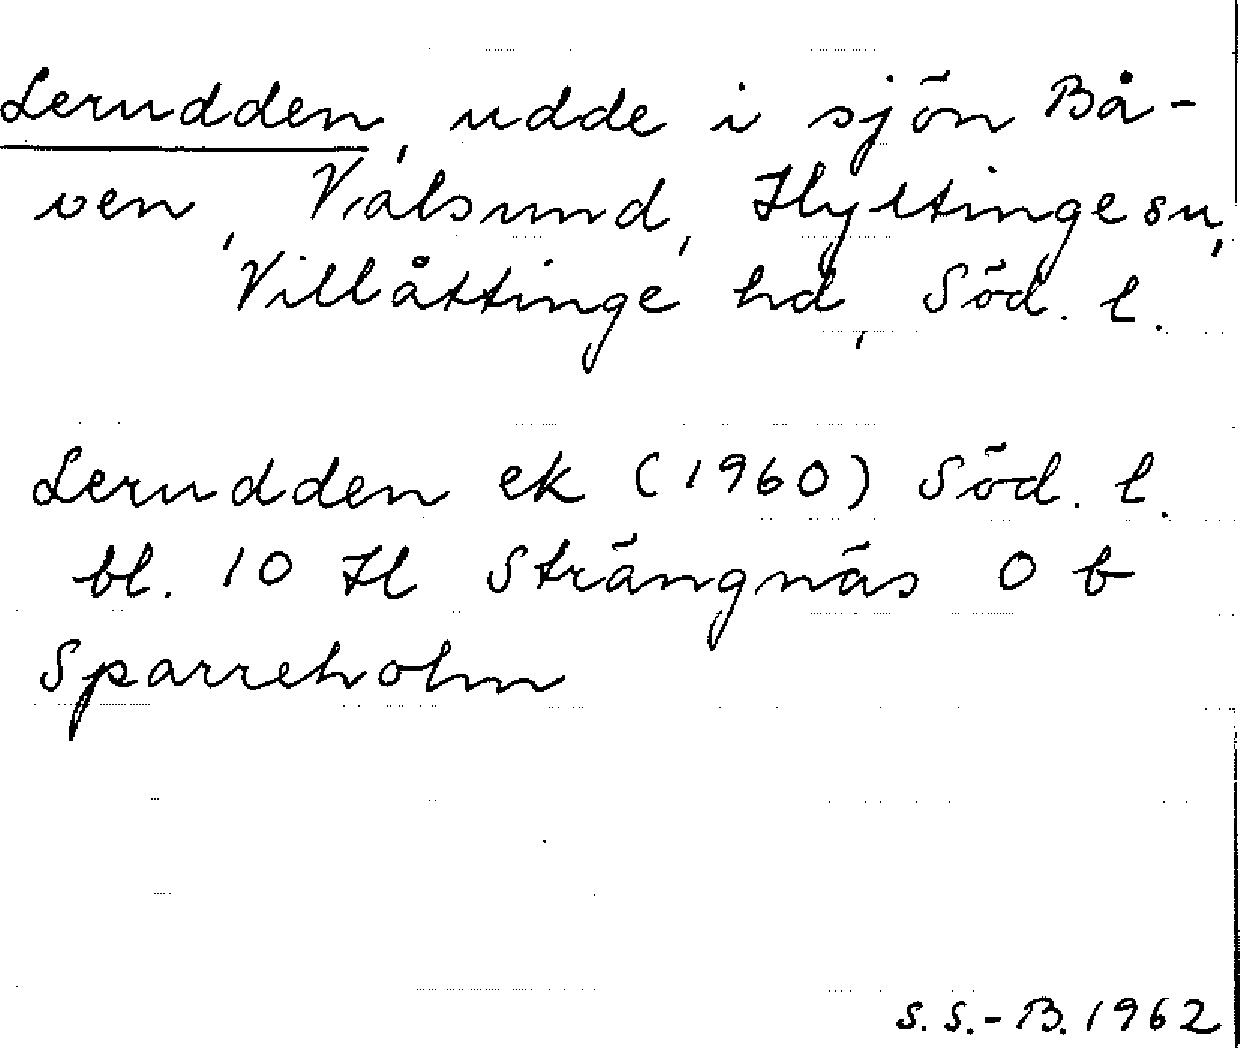 Lerudden, udde i sjön Bå-
ven, Vialsund, Hyltinge sn,
Villåttinge hd, Söd. l.
Lerudden ek (1960) Söd. l.
bl. 10 H Strängnäs O b
Sparreholm
S. S.-B. 1962